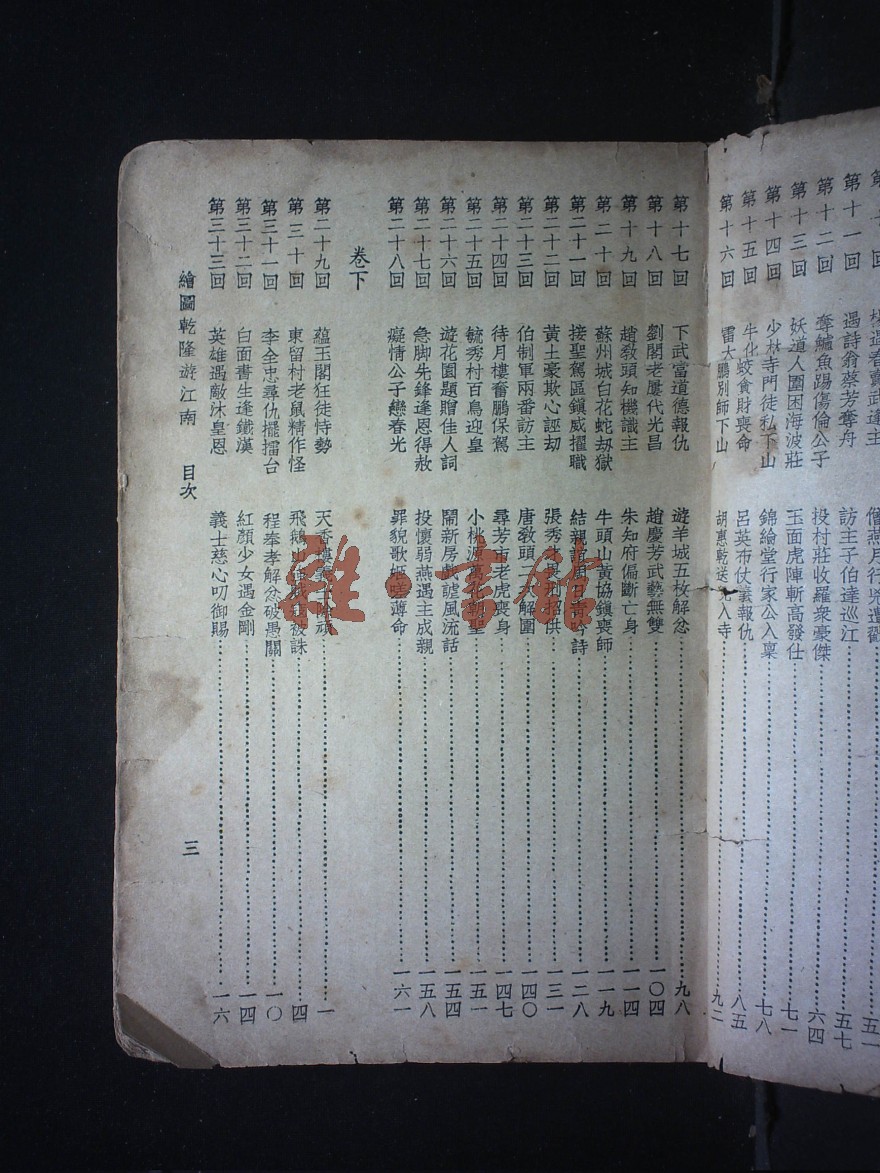 第十一回 遇詩翁蔡芳奪舟 訪主子伯達巡江 五七
第十二回 奪鱸魚踢傷倫公子 投村莊收羅衆豪傑 六四
第十三回 妖道人圍困海波莊 玉面虎陣斬高發仕 七一
第十四回 少林寺門徒私下山 錦綸堂行家公入稟 七八
第十五回 牛化蛟貪財喪命 呂英布仗義報仇 八五
第十六回 雷大鵬別師下山 胡惠乾送 入寺 九二
第十七回 下武當道德報仇 遊羊城五枚解忿 九八
第十八回 劉閣老屢代光昌 趙慶芳武藝無雙 一〇四
第十九回 趙敎頭知機識主 朱知府偏斷亡身 一一四
第二十回 蘇州城白花蛇劫獄 牛頭山黃協鎭喪師 一一九
第二十一回 接聖駕區鎭威擢職 結親誼周日青吟詩 一二八
第二十二回 黃土豪欺心誣劫 張秀才 招供 一三一
第二十三回 伯制軍兩番訪主 唐敎頭二次解圍 一四〇
第二十四回 待月樓奮鵬保駕 尋芳市老虎喪身 一四七
第二十五回 毓秀村百鳥迎皇 小桃源 聖 一五一
第二十六回 遊花園題贈佳人詞 鬧新房戲謔風流話 一五四
第二十七回 急脚先鋒逢恩得赦 投懷弱燕遇主成親 一五八
第二十八回 癡情公子戀春光 罪貌歌姬嗟薄命 一六一
卷下
第二十九回 蘊玉閣狂徒恃勢 天香樓 頑 一
第三十回 東留村老鼠精作怪 飛鵝山 被誅 四
第三十一回 李全忠尋仇擺擂台 程奉孝解忿破愚關 一〇
第三十二回 白面書生逢鐵漢 紅顏少女遇金剛 一四
第三十三回 英雄遇敵沐皇恩 義士慈心叨御賜 一六
繪圖乾隆遊江南 目次 三
雜·書館